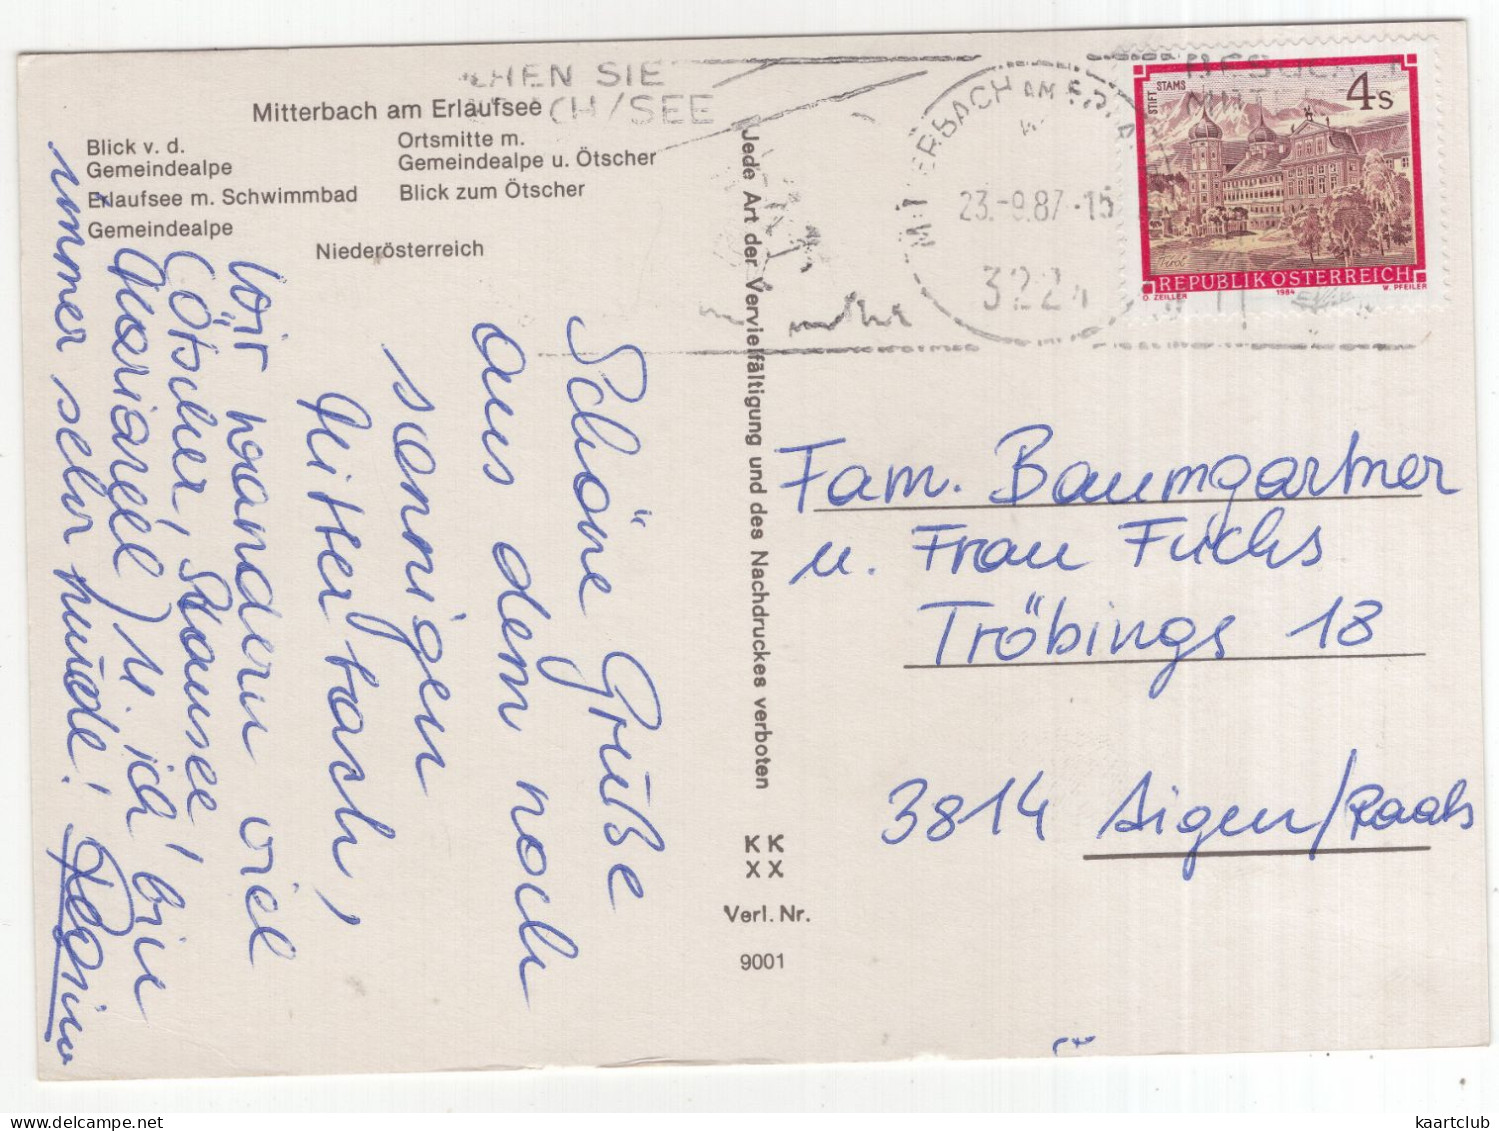 Mitterbach am Erlaufsee
Blick v. d.
Gemeindealpe
Erlaufsee m. Schwimmbad
Gemeindealpe
Ortsmitte m.
Gemeindealpe u. Ötscher
Blick zum Ötscher
Niederösterreich
Schöne Grüße
aus dem noch
sonnigen
Mitterbach,
Wir wandern viel
(Ötscher, Stausee,
Mariazell) u. ich bin
immer sehr müde!
Jede Art der Vervielfältigung und des Nachdruckes verboten
K K
X X
Verl. Nr.
9001
CHEN SIE
CH/SEE
23.-9.87-15
3224
STIFT STAMS
4 S
Tirol
REPUBLIK ÖSTERREICH
O. ZEILLER 1984 W. PFEILER
Fam. Baumgartner
u. Frau Fuchs
Tröbings 18
3814 Aigen/Raabs
kaartclub